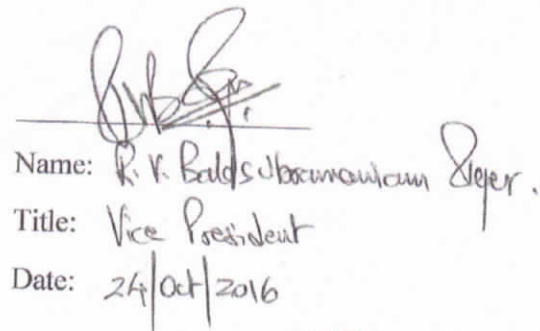 Name: R. V. Balasubramaniam Iyer.
Title: Vice President
Date: 24/Oct/2016